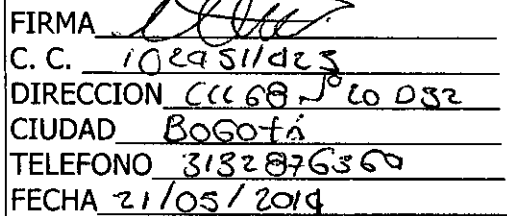 FIRMA
C. C.
DIRECCION CLL 68 N° 20 D32
CIUDAD BOGOtá
TELEFONO 3132876360
FECHA 21/05/2019